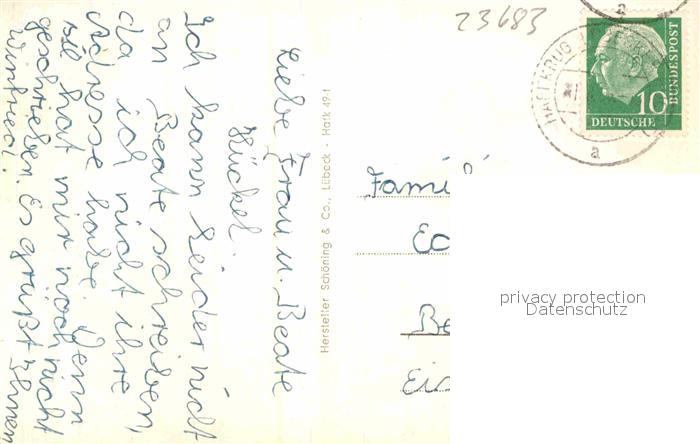 23683
HAFFKRUG
a
a
10
DEUTSCHE
BUNDESPOST
Liebe Frau u. Beate
Hückel.
Ich kann leider nicht
an Beate schreiben,
da ich nicht ihre
Adresse habe. Denn
sie hat mir noch nicht
geschrieben. Es grüßt Ihnen
Winfried.
Hersteller Schöning & Co., Lübeck - Hafk 49-1
Fami
Ec
Be
Eic
privacy protection
Datenschutz